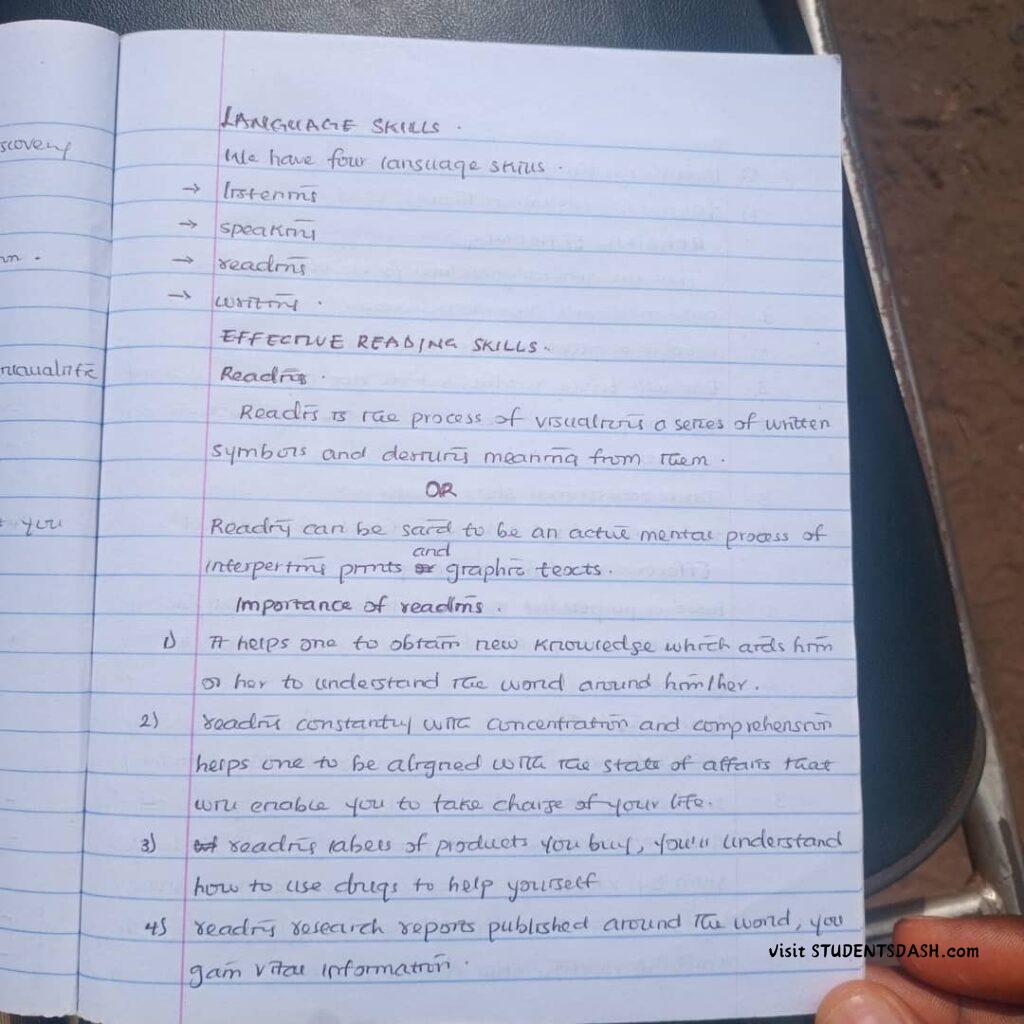 LANGUAGE SKILLS.
We have four language skills.
→ listening
→ speaking
→ reading
→ writing.
EFFECTIVE READING SKILLS.
Reading.
Reading is the process of visualizing a series of written
symbols and deriving meaning from them.
OR
Reading can be said to be an active mental process of
and
interperting prints graphic texts.
Importance of reading.
1) It helps one to obtain new knowledge which aids him
or her to understand the world around him/her.
2) reading constantly with concentration and comprehension
helps one to be aligned with the state of affairs that
will enable you to take charge of your life.
3) reading labels of products you buy, you'll understand
how to use drugs to help yourself
4) reading research reports published around the world, you
gain vital information.
scovery
you
visit STUDENTSDASH.com